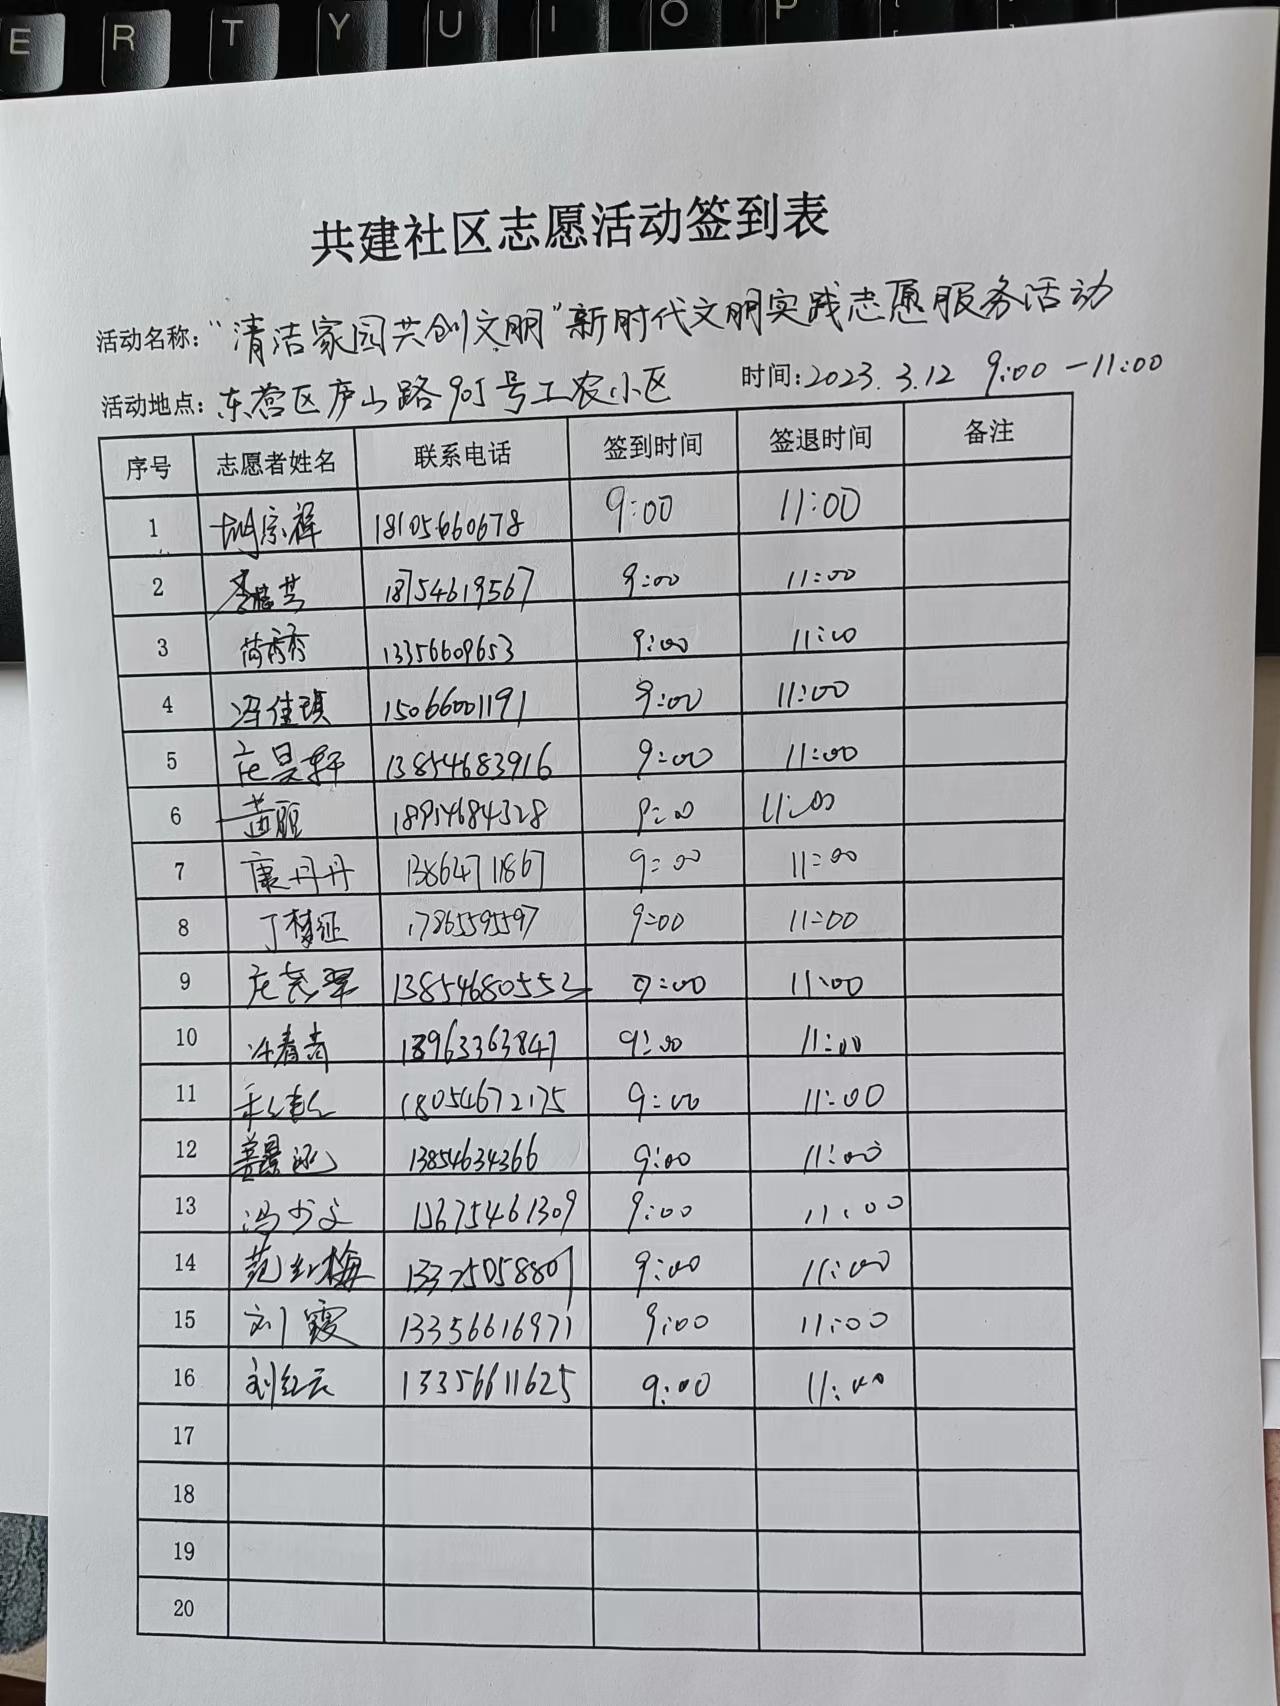 E R T Y U I O P [
共建社区志愿活动签到表
活动名称:“清洁家园共创文明”新时代文明实践志愿服务活动
活动地点:东营区庐山路905号工农小区 时间:2023.3.12 9:00-11:00
序号 志愿者姓名 联系电话 签到时间 签退时间 备注
1 胡宗祥 18105660678 9:00 11:00
2 18754619567 9:00 11:00
3 苟秀秀 13356609653 9:00 11:00
4 冯佳琪 15066001191 9:00 11:00
5 庄昊轩 13854683916 9:00 11:00
6 黄丽 18914684328 9:00 11:00
7 康丹丹 13864711867 9:00 11:00
8 丁梅征 17865595597 9:00 11:00
9 13854680552 9:00 11:00
10 18963363847 9:00 11:00
11 18054672175 9:00 11:00
12 13854634366 9:00 11:00
13 冯少文 15675461309 9:00 11:00
14 范红梅 13325058801 9:00 11:00
15 刘霞 13356616971 9:00 11:00
16 刘红云 13356611625 9:00 11:00
17
18
19
20